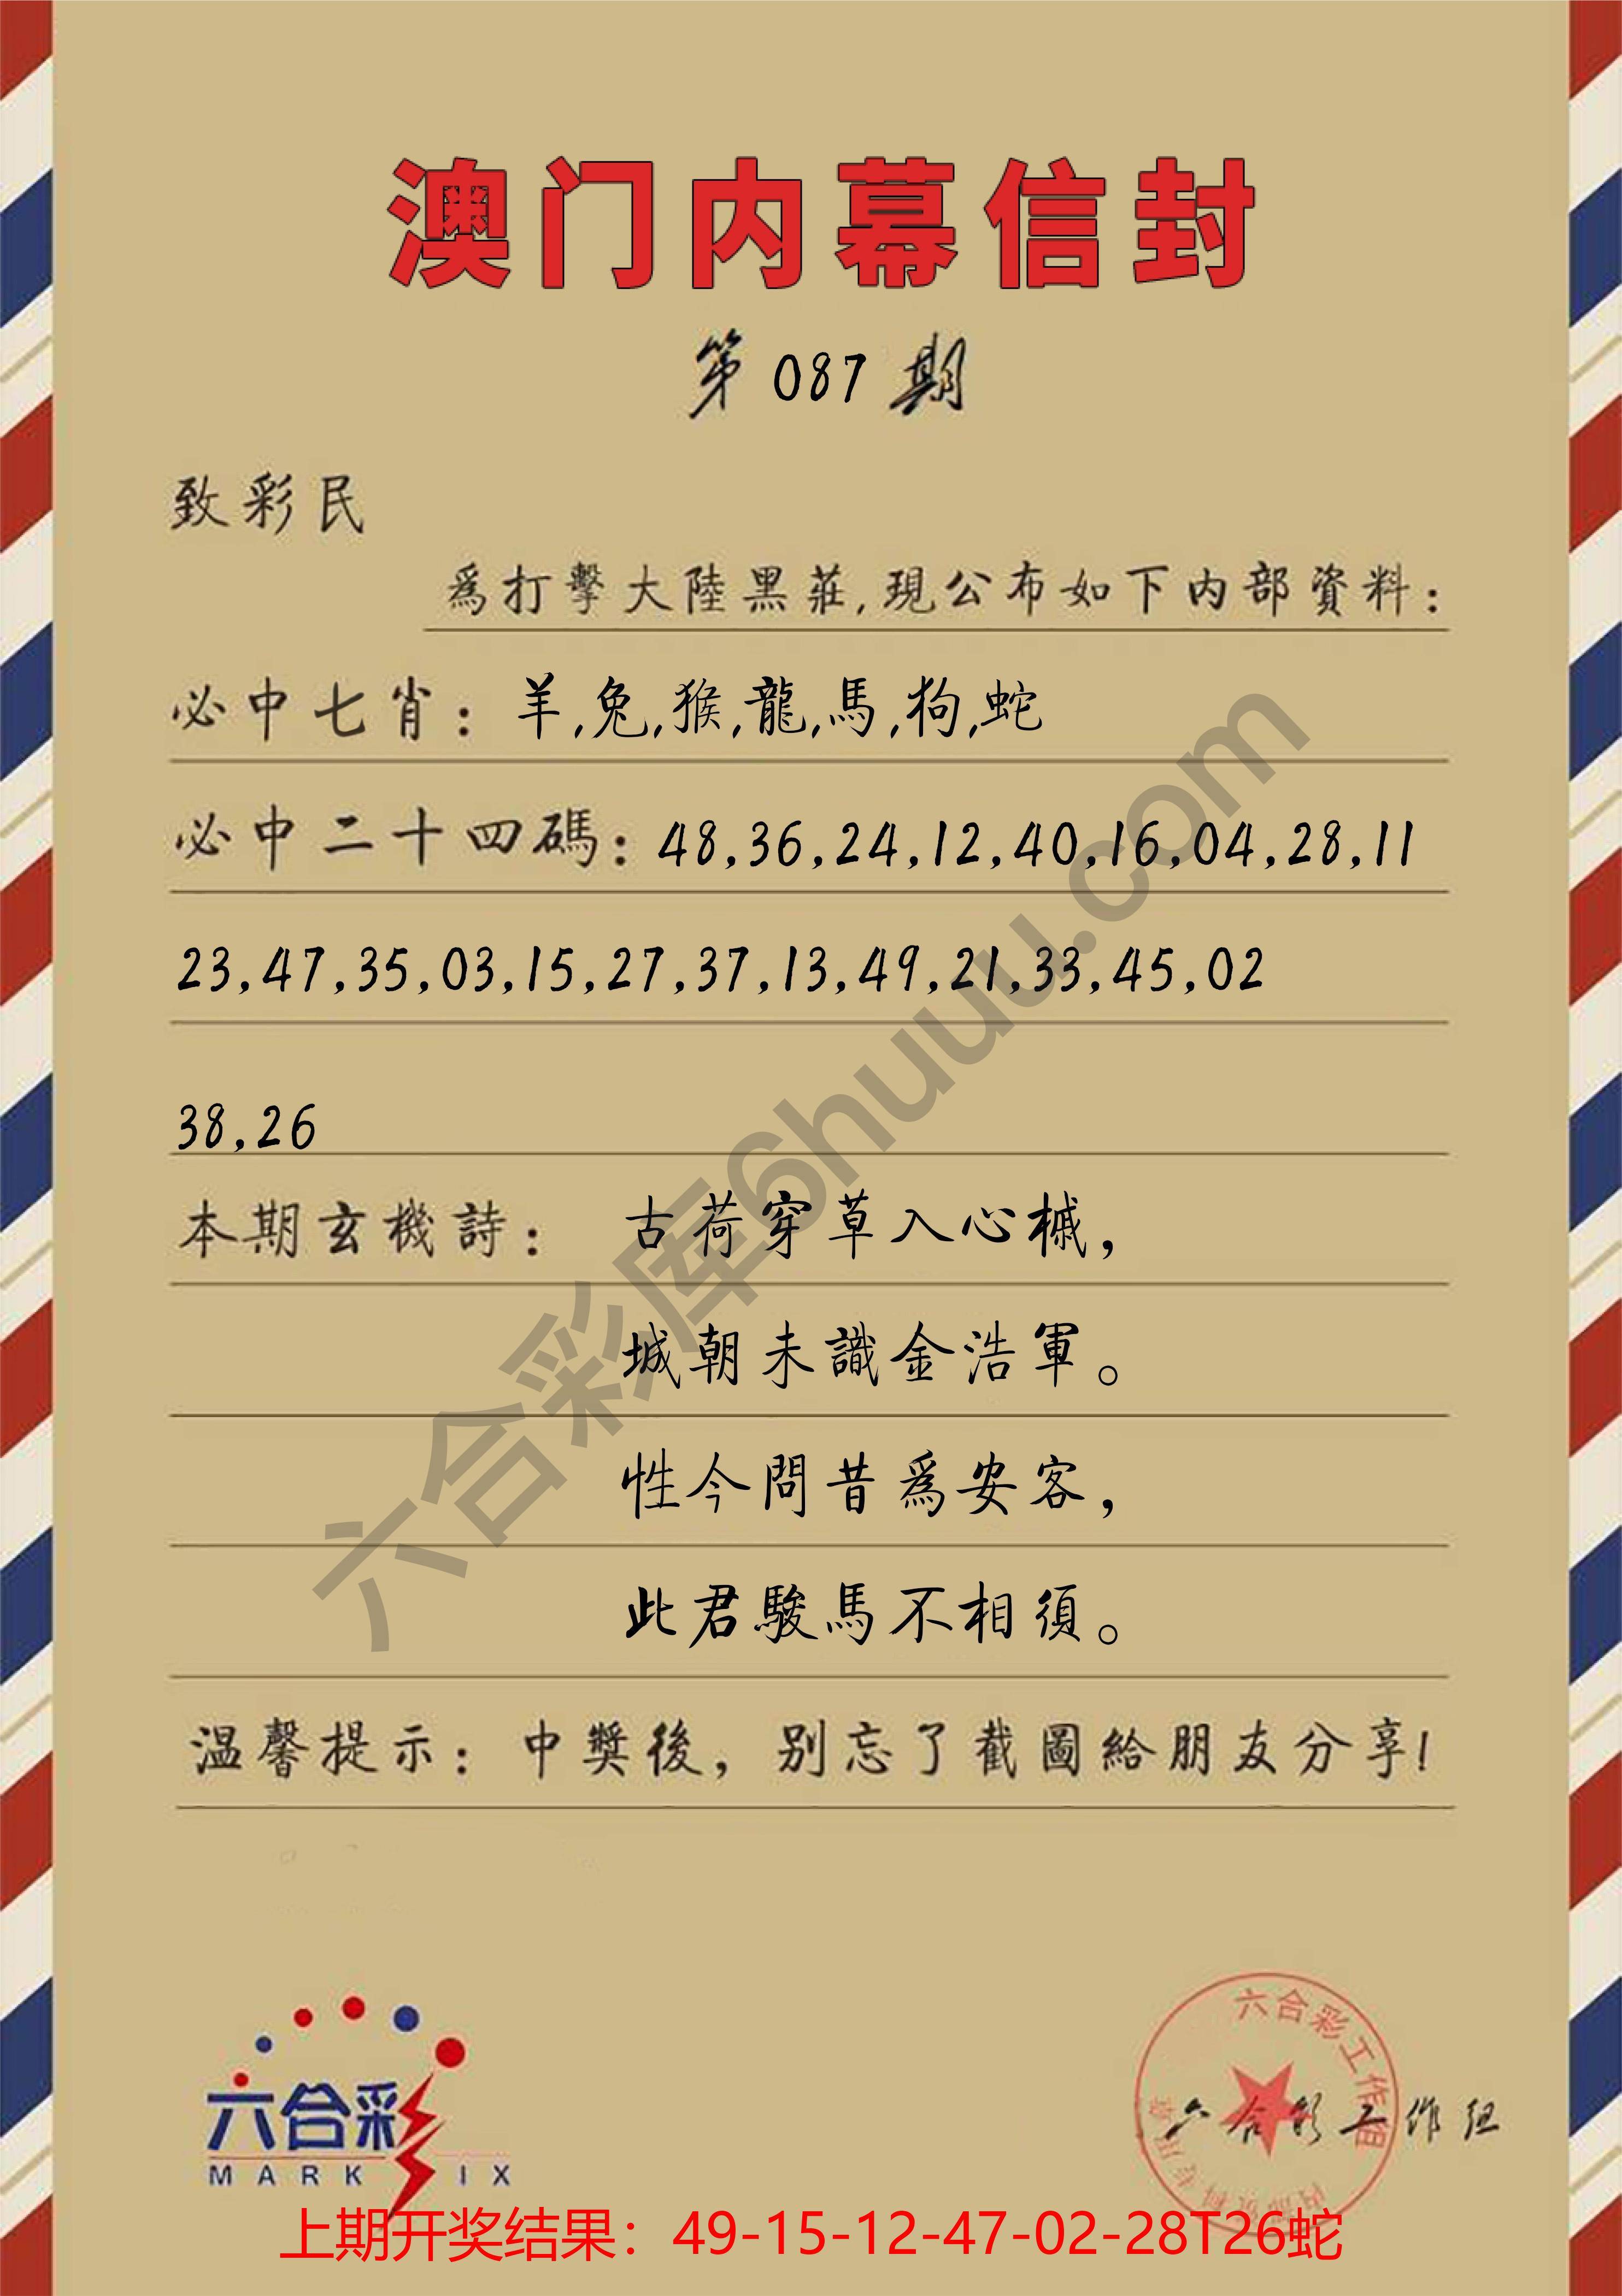 澳门内幕信封
第 087 期
致彩民
爲打擊大陸黑莊,現公布如下内部資料:
必中七肖: 羊,兔,猴,龍,馬,狗,蛇
必中二十四碼: 48,36,24,12,40,16,04,28,11
23,47,35,03,15,27,37,13,49,21,33,45,02
38,26
本期玄機詩: 古荷穿草入心槭,
城朝未識金浩軍。
性今問昔爲安客,
此君駿馬不相須。
温馨提示: 中獎後, 别忘了截圖給朋友分享!
六合彩库6huuu.com
六合彩
MARK SIX
六合彩工作组
六合彩工作组
上期开奖结果：49-15-12-47-02-28T26蛇